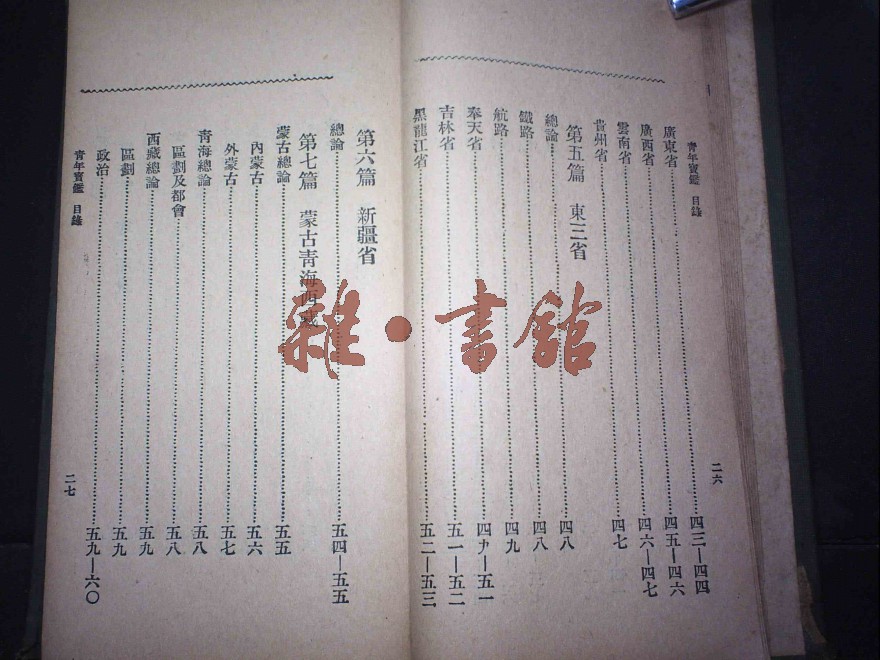 青年寶鑑 目錄
二六
廣東省 四三—四四
廣西省 四五—四六
雲南省 四六—四七
貴州省 四七
第五篇 東三省
總論 四八
鐵路 四八
航路 四九
奉天省 四九—五一
吉林省 五一—五二
黑龍江省 五二—五三
第六篇 新疆省
總論 五四—五五
第七篇 蒙古青海西藏
蒙古總論 五五
內蒙古 五六
外蒙古 五七
青海總論 五八
區劃及都會 五八
西藏總論 五九
區劃 五九
政治 五九—六〇
青年寶鑑 目錄
二七
雜·書館